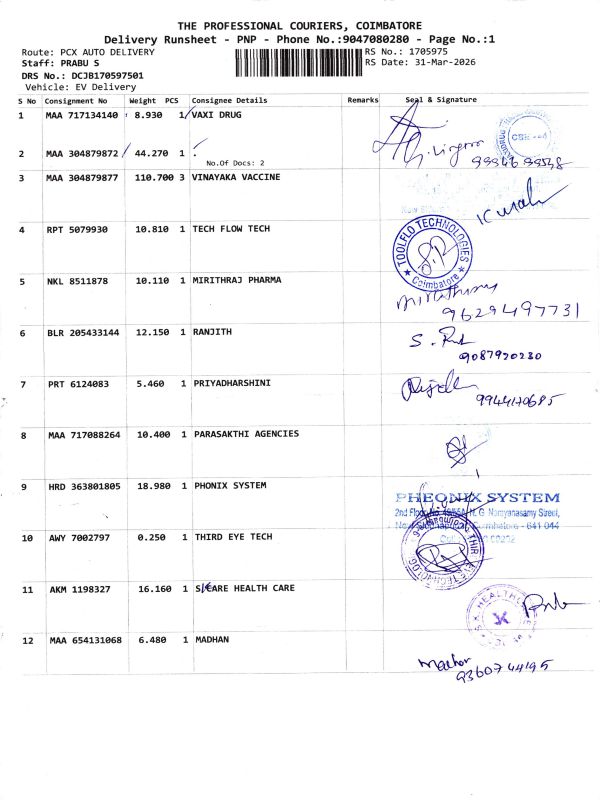 THE PROFESSIONAL COURIERS, COIMBATORE
Delivery Runsheet - PNP - Phone No.:9047080280 - Page No.:1
Route: PCX AUTO DELIVERY RS No.: 1705975
Staff: PRABU S RS Date: 31-Mar-2026
DRS No.: DCJB170597501
Vehicle: EV Delivery
S No Consignment No Weight PCS Consignee Details Remarks Seal & Signature
1 MAA 717134140 8.930 1 VAXI DRUG
2 MAA 304879872 44.270 1 .
No.Of Docs: 2
3 MAA 304879877 110.700 3 VINAYAKA VACCINE
4 RPT 5079930 10.810 1 TECH FLOW TECH
TOOLFLO TECHNOLOGIES
Coimbatore
5 NKL 8511878 10.110 1 MIRITHRAJ PHARMA
9629497731
6 BLR 205433144 12.150 1 RANJITH
9087920280
7 PRT 6124083 5.460 1 PRIYADHARSHINI
9944170685
8 MAA 717088264 10.400 1 PARASAKTHI AGENCIES
9 HRD 363801805 18.980 1 PHONIX SYSTEM
PHEONIX SYSTEM
2nd Floor, N. G. Narayanasamy Street,
Coimbatore - 641 044
10 AWY 7002797 0.250 1 THIRD EYE TECH
11 AKM 1198327 16.160 1 S CARE HEALTH CARE
12 MAA 654131068 6.480 1 MADHAN
9360744195